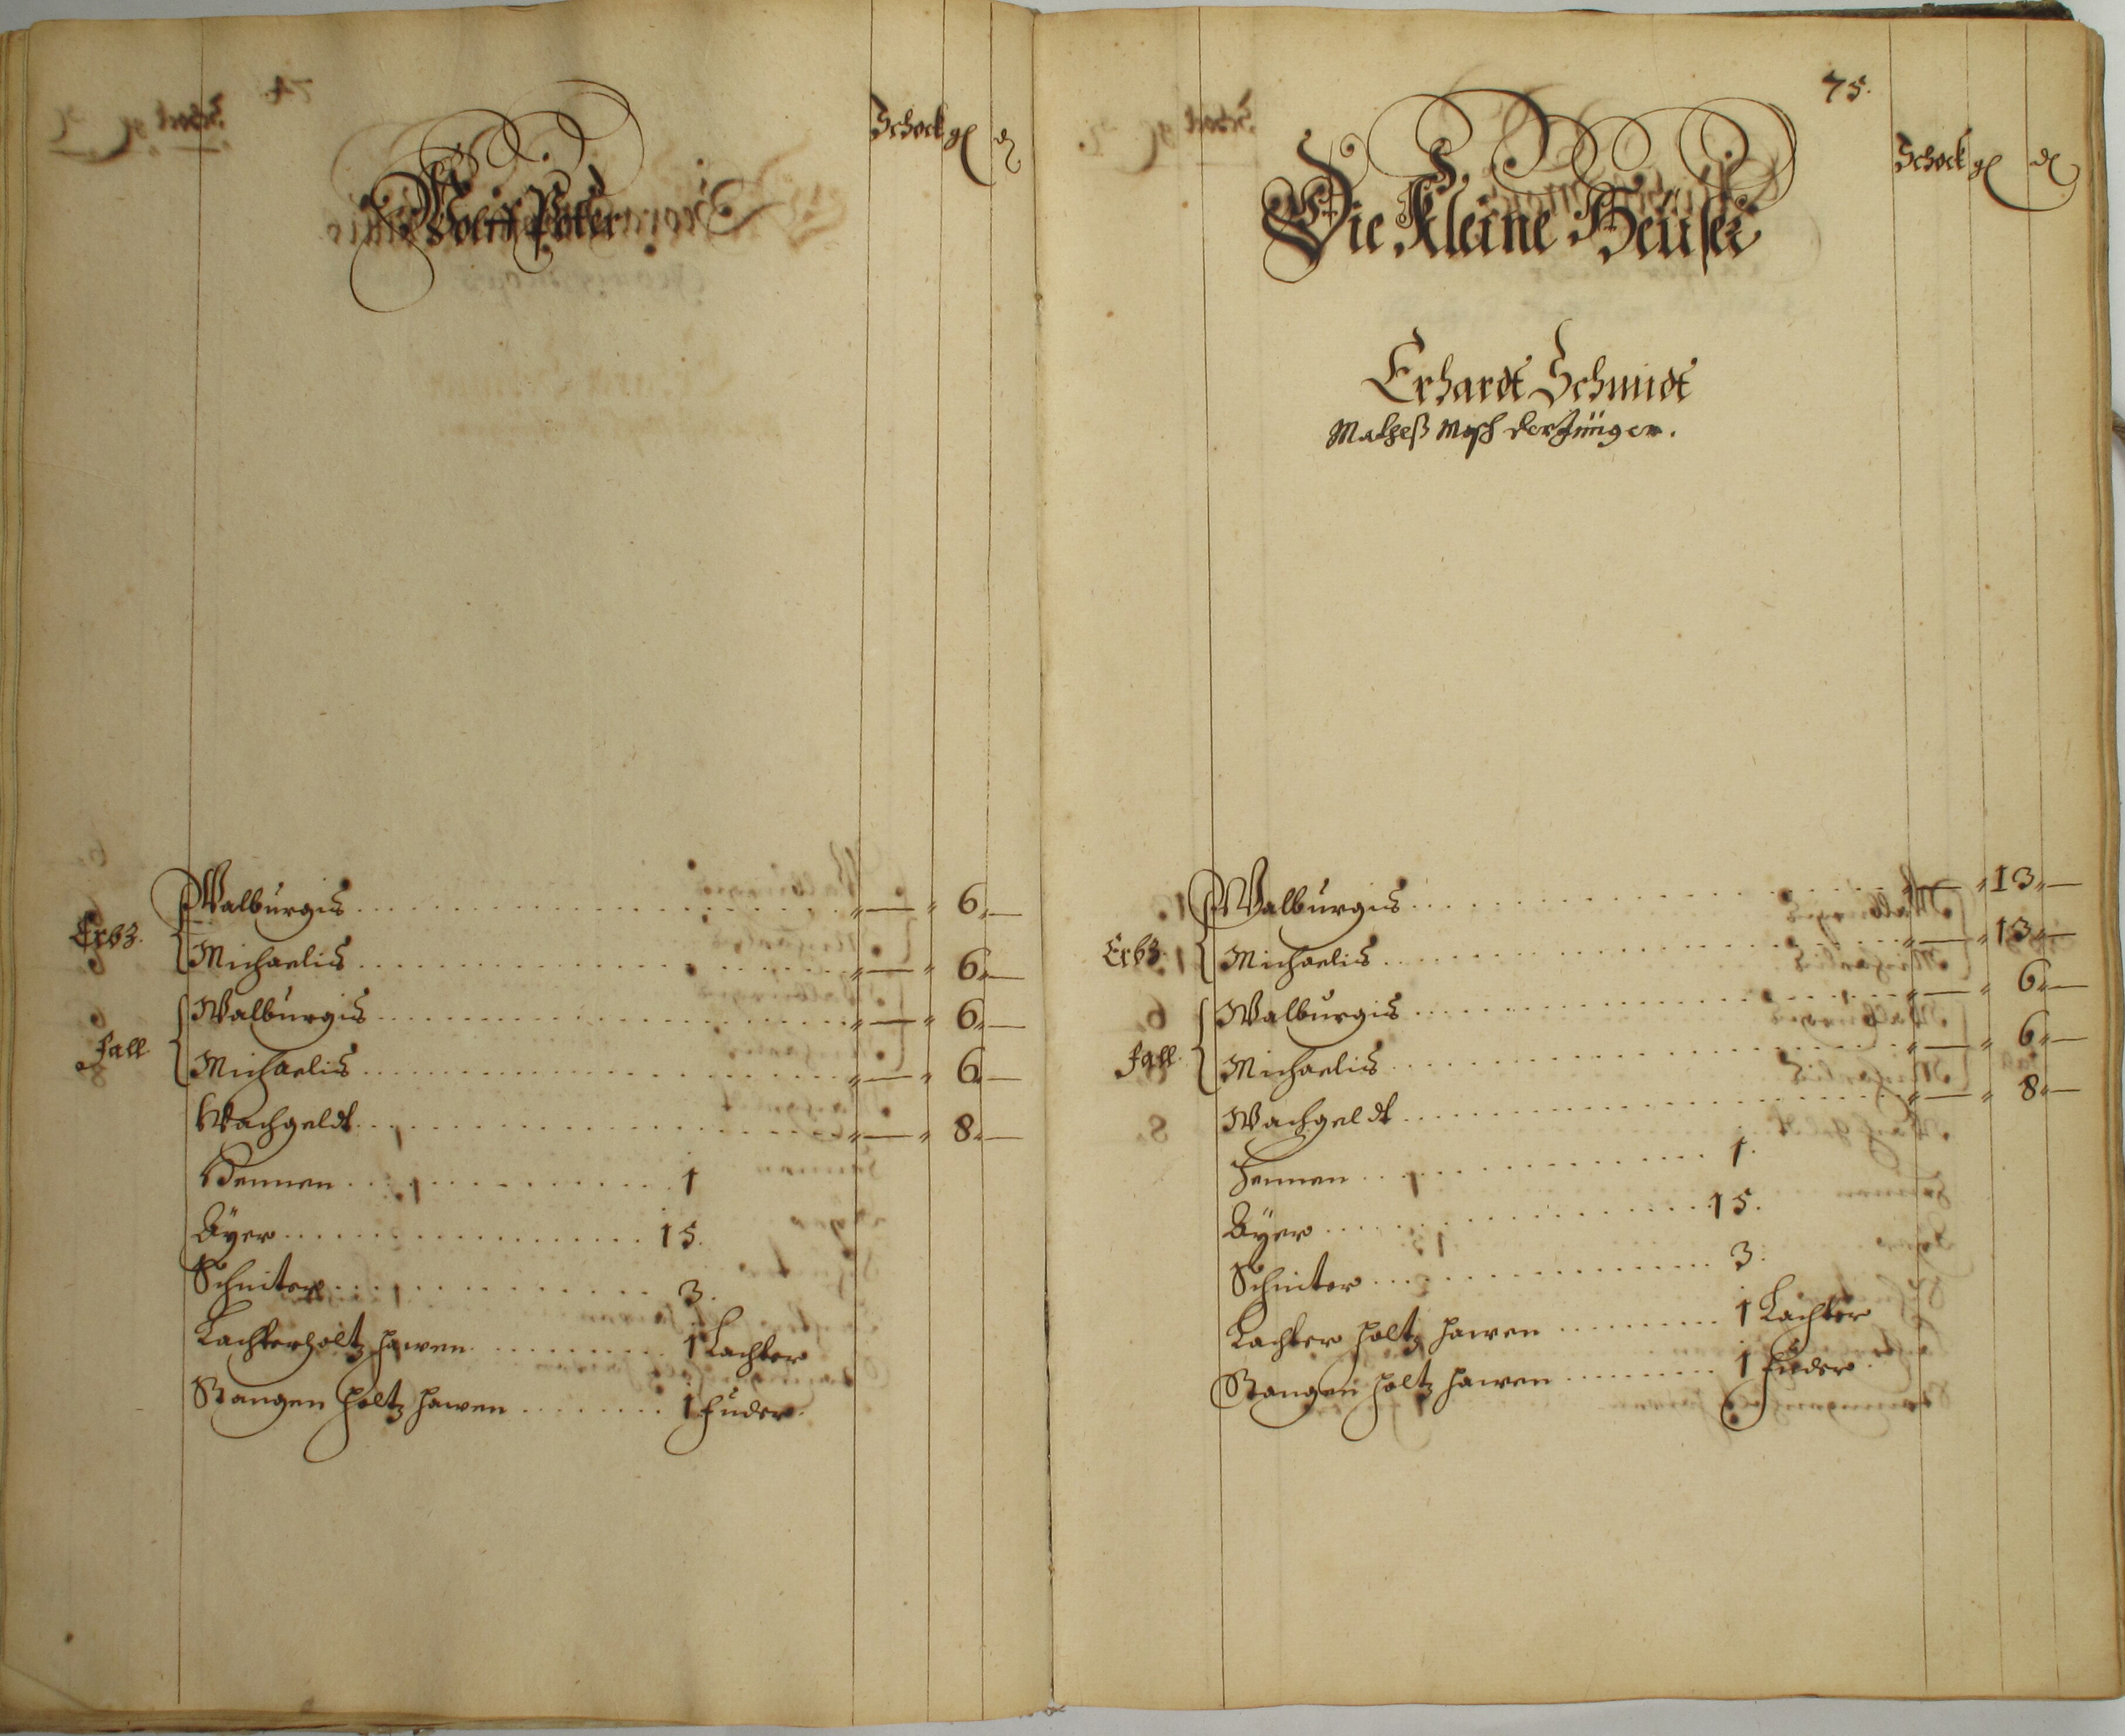 Schock gl d
Wolff Poller
Erbz. Walburgis . . . . „ — „ 6 „ —
Michaelis . . . . „ — „ 6 „ —
Fall. Walburgis . . . . „ — „ 6 „ —
Michaelis . . . . „ — „ 6 „ —
Wachgeldt . . . . „ — „ 8 „ —
Hennen . . . . 1
Äyer . . . . 15.
Schniter . . . . 3.
Lachterholtz hawen . . . . 1 Lachter
Stangen holtz hawen . . . . 1 Fuder.
75.
Schock gl d
Die Kleine Heuser
Erhardt Schmidt
Matheß der Jünger.
Erbz. Walburgis . . . . „ — „ 13 „ —
Michaelis . . . . „ — „ 13 „ —
Fall. Walburgis . . . . „ — „ 6 „ —
Michaelis . . . . „ — „ 6 „ —
Wachgeldt . . . . „ — „ 8 „ —
Hennen . . . . 1.
Äyer . . . . 15.
Schniter . . . . 3.
Lachter holtz hawen . . . . 1 Lachter
Stangen holtz hawen . . . . 1 Fuder.